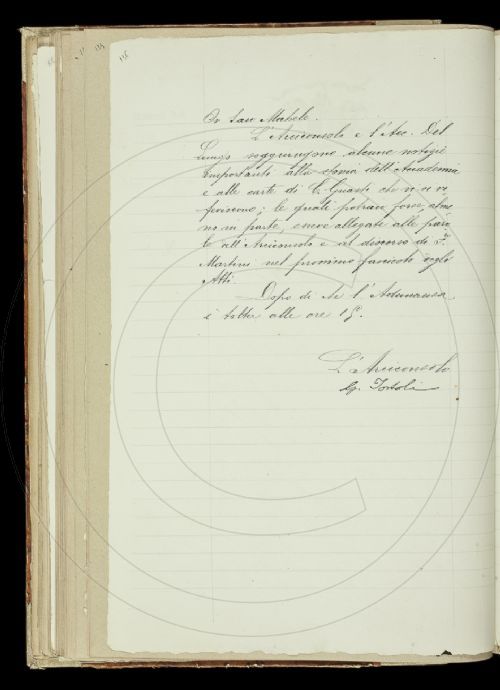 Or San Michele.
L'Arciconsolo e l'Acc. Del
Lungo soggiungono alcune notizie
importanti alla storia dell'Accademia
e alle carte di C. Guasti che vi si ri
feriscono; le quali potran forse, alme
no in parte, essere allegate alle paro
le dell'Arciconsolo e al discorso di F.
Martini nel prossimo fascicolo degli
Atti.
Dopo di che l'Adunanza
è tolta alle ore 15.
L'Arciconsolo
G. Tortoli